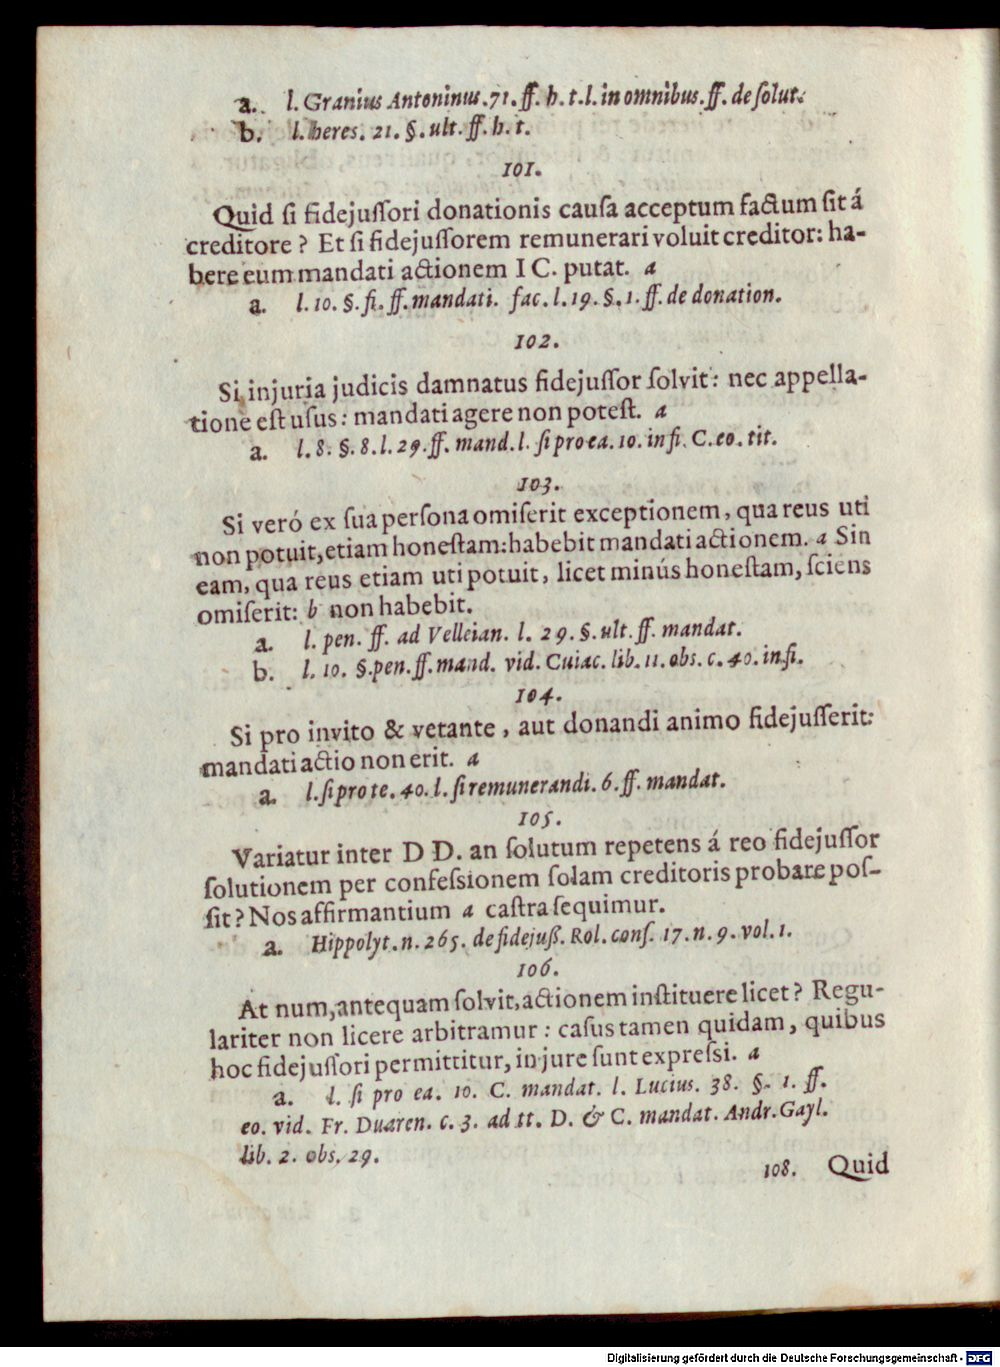 a. l. Granius Antoninus. 71. ff. h. t. l. in omnibus. ff. de solut.
b. l. heres. 21. §. ult. ff. h. t.
101.
Quid si fidejussori donationis causa acceptum factum sit á
creditore? Et si fidejussorem remunerari voluit creditor: ha-
bere eum mandati actionem I C. putat. a
a. l. 10. §. fi. ff. mandati. fac. l. 19. §. 1. ff. de donation.
102.
Si injuria judicis damnatus fidejussor solvit: nec appella-
tione est usus: mandati agere non potest. a
a. l. 8. §. 8. l. 29. ff. mand. l. si pro ea. 10. in fi. C. eo. tit.
103.
Si veró ex sua persona omiserit exceptionem, qua reus uti
non potuit, etiam honestam: habebit mandati actionem. a Sin
eam, qua reus etiam uti potuit, licet minús honestam, sciens
omiserit: b non habebit.
a. l. pen. ff. ad Velleian. l. 29. §. ult. ff. mandat.
b. l. 10. §. pen. ff. mand. vid. Cuiac. lib. 11. obs. c. 40. in fi.
104.
Si pro invito & vetante, aut donandi animo fidejusserit:
mandati actio non erit. a
a. l. si pro te. 40. l. si remunerandi. 6. ff. mandat.
105.
Variatur inter D D. an solutum repetens á reo fidejussor
solutionem per confessionem solam creditoris probare pos-
sit? Nos affirmantium a castra sequimur.
a. Hippolyt. n. 265. de fidejuß. Rol. cons. 17. n. 9. vol. 1.
106.
At num, antequam solvit, actionem instituere licet? Regu-
lariter non licere arbitramur: casus tamen quidam, quibus
hoc fidejussori permittitur, in jure sunt expressi. a
a. l. si pro ea. 10. C. mandat. l. Lucius. 38. §. 1. ff.
eo. vid. Fr. Duaren. c. 3. ad tt. D. & C. mandat. Andr. Gayl.
lib. 2. obs. 29.
108. Quid
Digitalisierung gefördert durch die Deutsche Forschungsgemeinschaft - DFG